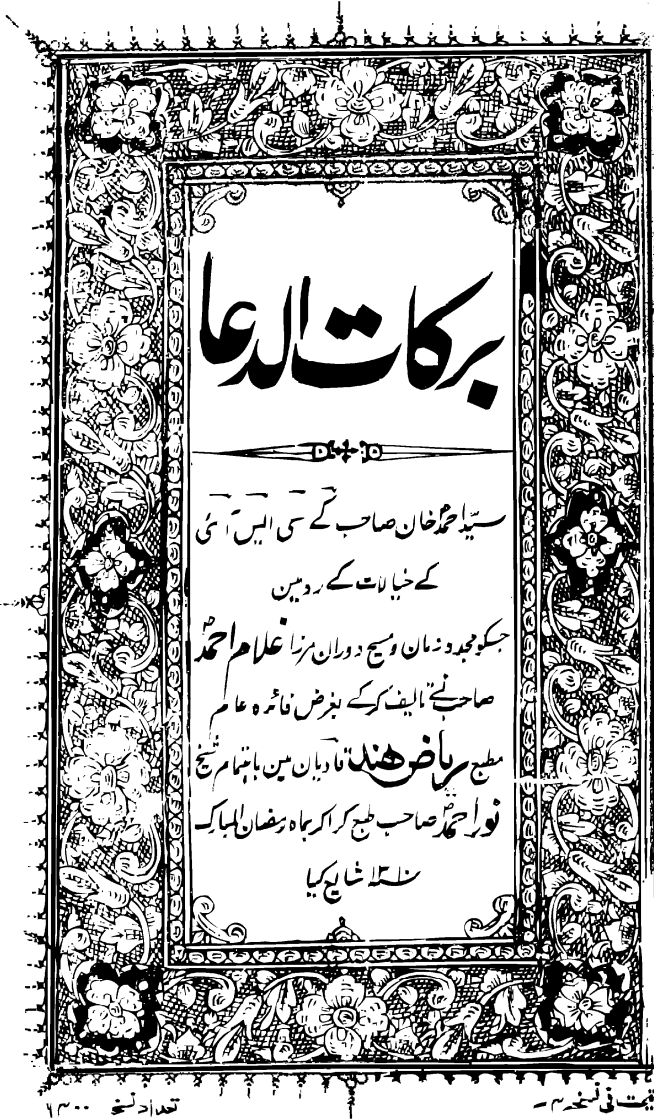 برکات الدعا
سید احمد خان صاحب کے سی ایس آئی
کے خیالات کے رد مین
جسکو مجدد زمان و مسیح دوران مرزا غلام احمد
صاحب نے تالیف کرکے بغرض فائدہ عام
مطبع ریاض ھند قادیان مین باہتمام شیخ
نور احمد صاحب طبع کرا کر بماہ رمضان المبارک
سنہ ۱۳۱۰ شایع کیا
تعداد نسخہ
قیمت فی نسخہ